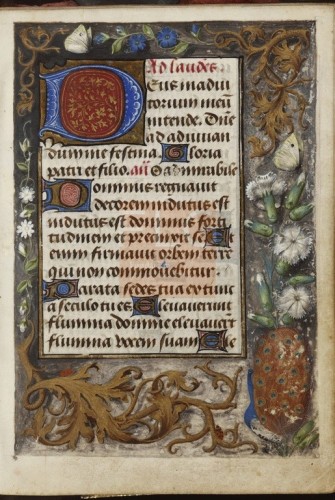 Ad laudes
Deus in adiu
torium meū
intende. Dn̄e
ad adiuuan
dum me festina. Gloria
patri et filio. añ O admirabile
Dominus regnauit
decorem indutus est
indutus est dominus forti
tudinem et precinxit se Et
enim firmauit orbem terre
qui non commouebitur.
Parata sedes tua ex tunc
a seculo tu es Eleuauerunt
flumina domine eleuauerūt
flumina vocem suam Ele